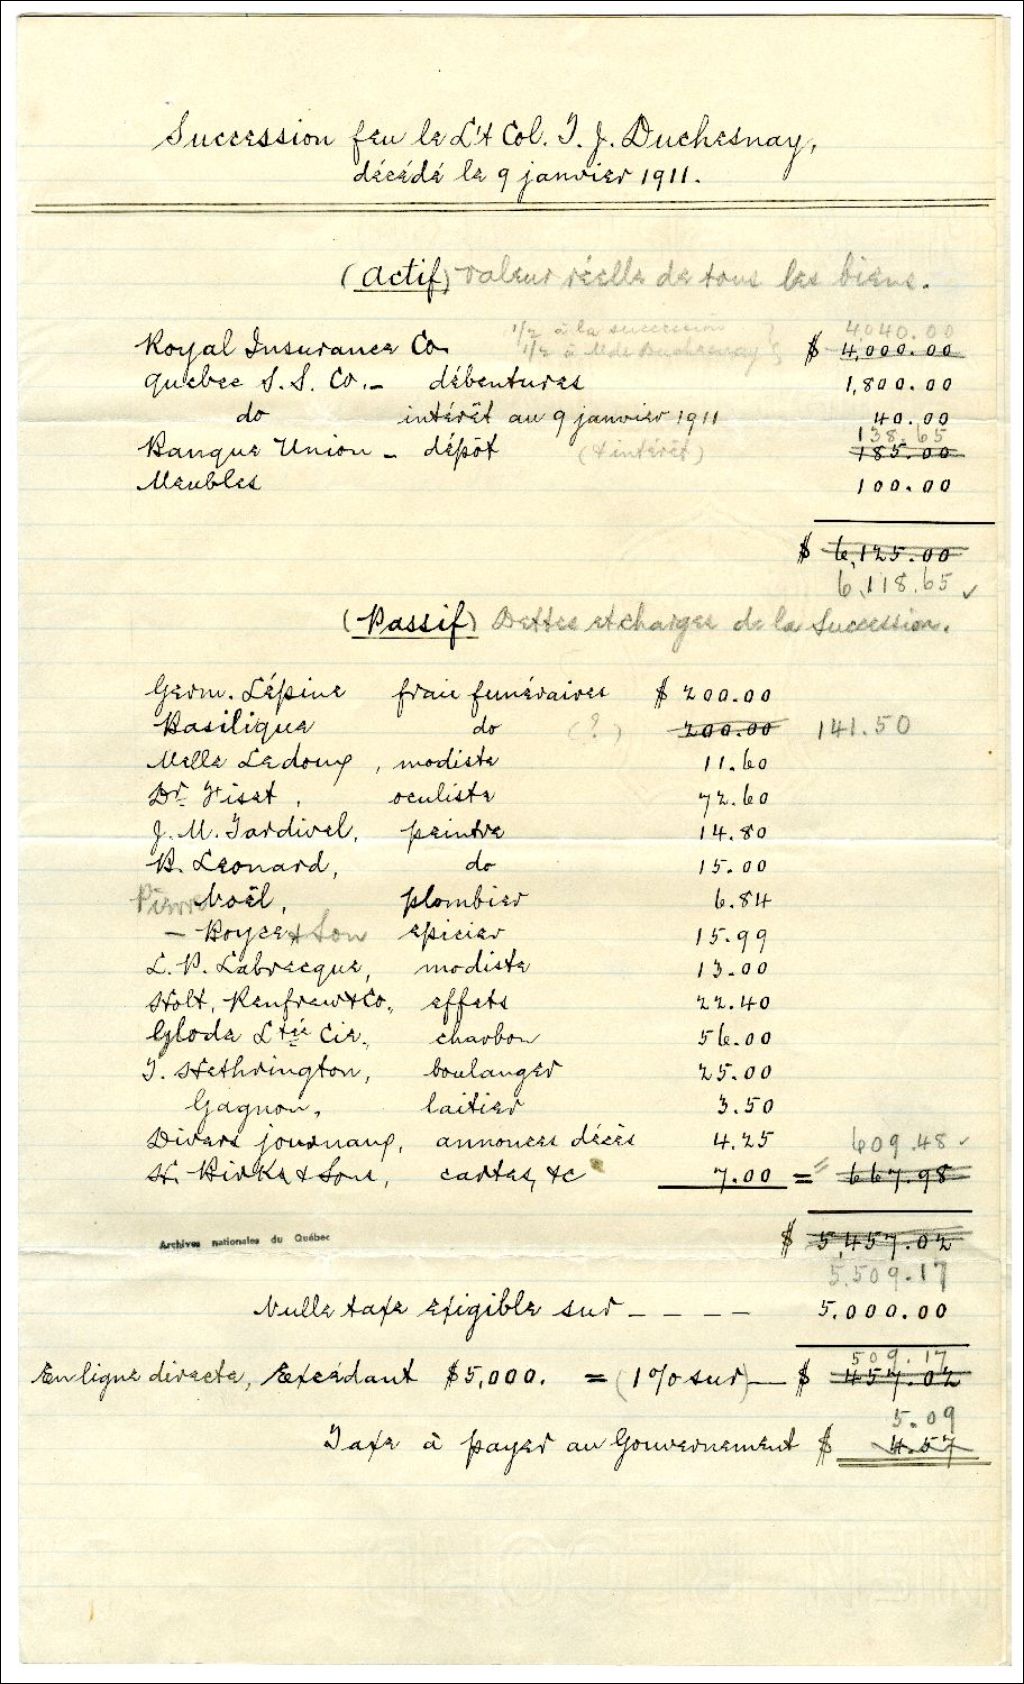 Succession feu le L't Col. T. J. Duchesnay,
décédé le 9 janvier 1911.
(Actif) Valeur réelle de tous les biens.
1/2 à la succession 4040.00
Royal Insurance Co 1/2 à Mde Duchesnay $ 4,000.00
Quebec S. S. Co. - débentures 1,800.00
do intérêt au 9 janvier 1911 40.00
138.65
Banque Union - dépôt (+ intérêt) 185.00
Meubles 100.00
$ 6,125.00
6,118.65 ✓
(Passif) Dettes et charges de la Succession.
Germ. Lépine frais funéraires $ 200.00
Basilique do (?) 200.00 141.50
Melle Ledoux, modiste 11.60
Dr. Fiset, oculiste 72.60
J. M. Tardivel, peintre 14.80
B. Leonard, do 15.00
Pierre Noël, plombier 6.84
- Boyce & Son epicier 15.99
L. P. Labrecque, modiste 13.00
Holt, Renfrew & Co., effets 22.40
Globe Ltée Cie., charbon 56.00
T. Hethrington, boulanger 25.00
Gagnon, laitier 3.50
Divers journaux, annonces décès 4.25 609.48 ✓
H. Birks & Sons, cartes, &c 7.00 = " 667.98
Archives nationales du Québec
$ 5,457.02
5,509.17
Nulle taxe exigible sur - - - - 5.000.00
509.17
En ligne directe, Excédant $5,000. = (1% sur) — $ 457.02
5.09
Taxe à payer au Gouvernement $ 4.57